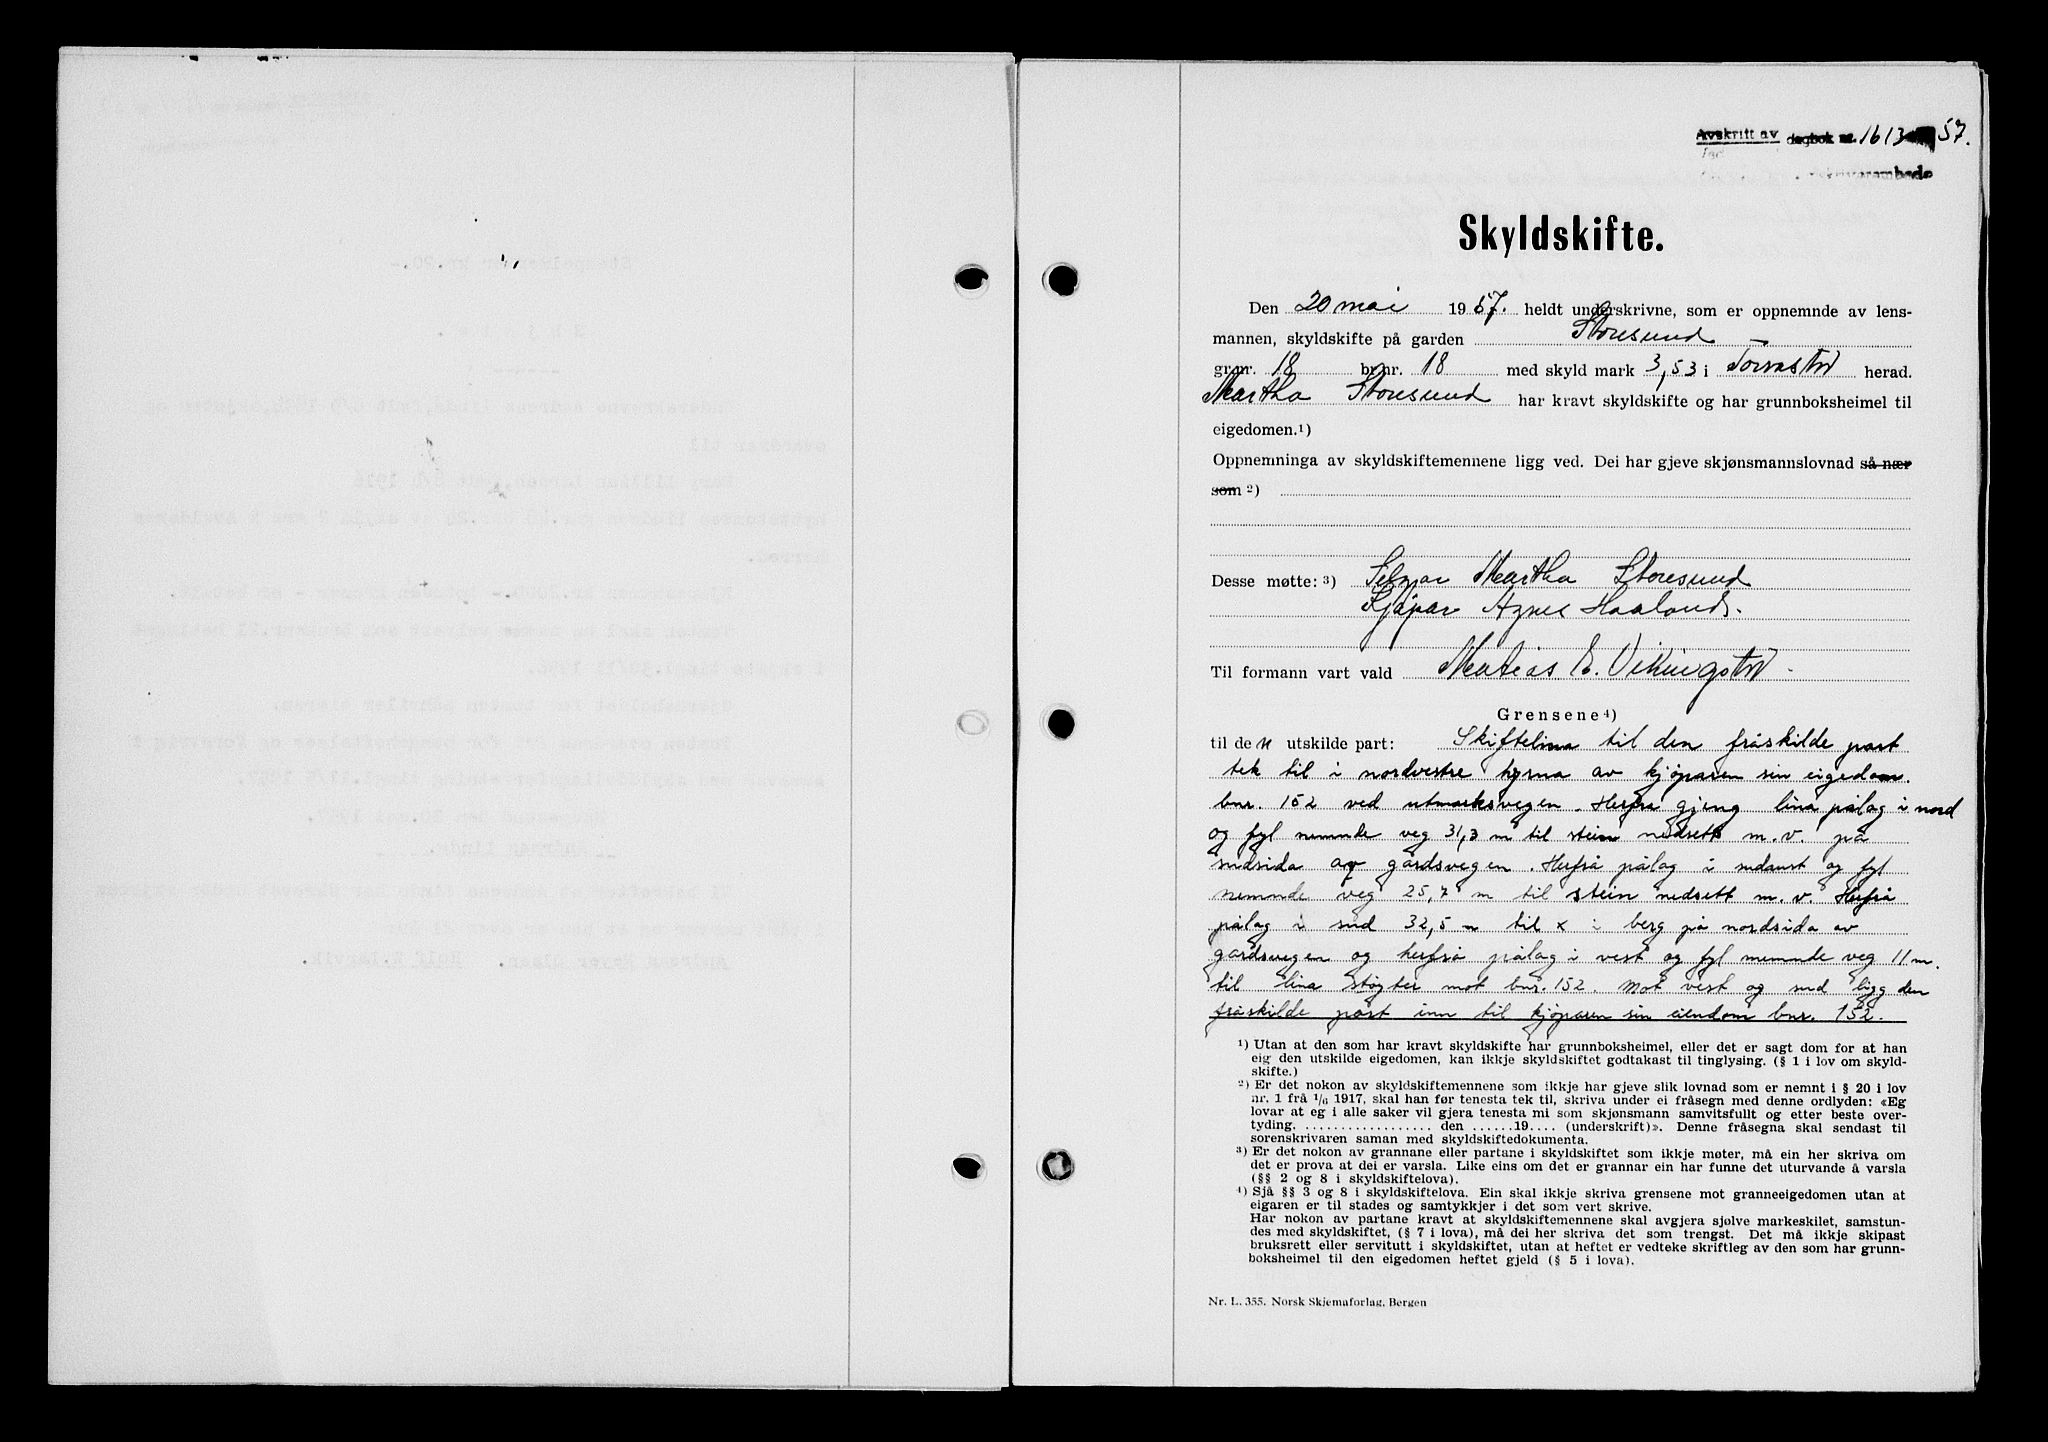 Avskrift av dagbok nr. 1613 57.
Skyldskifte.
Den 20 mai 1957. heldt underskrivne, som er oppnemnde av lens-
mannen, skyldskifte på garden Storesund
grnr. 18 brnr. 18 med skyld mark 3,53 i Torvastad herad.
Martha Storesund har kravt skyldskifte og har grunnboksheimel til
eigedomen.¹)
Oppnemninga av skyldskiftemennene ligg ved. Dei har gjeve skjønsmannslovnad så nær
som ²)
Desse møtte: ³) Seljar Martha Storesund
Kjøpar Agnes Haaland.
Til formann vart vald Mateas E. Vikingstad.
Grensene ⁴)
til den utskilde part: Skiftelina til den fråskilde part
tek til i nordvestre hyrna av kjøparen sin eigedom.
bnr. 152 ved utmarksvegen. Herfrå gjeng lina pålag i nord
og fyl nemnde veg 31,3 m til stein nedsett m.v. på
sudsida av gardsvegen. Herfrå pålag i sudaust og fyl
nemnde veg 25,7 m til stein nedsett m.v. Herfrå
pålag i sud 32,5 m til x i berg på nordsida av
gardsvegen og herfrå pålag i vest og fyl nemnde veg 11 m.
til lina støyter mot bnr. 152. Mot vest og sud ligg den
fråskilde part inn til kjøparen sin eiendom bnr. 152.
¹) Utan at den som har kravt skyldskifte har grunnboksheimel, eller det er sagt dom for at han
eig den utskilde eigedomen, kan ikkje skyldskiftet godtakast til tinglysing. (§ 1 i lov om skyld-
skifte.)
²) Er det nokon av skyldskiftemennene som ikkje har gjeve slik lovnad som er nemnt i § 20 i lov
nr. 1 frå 1/6 1917, skal han før tenesta tek til, skriva under ei fråsegn med denne ordlyden: «Eg
lovar at eg i alle saker vil gjera tenesta mi som skjønsmann samvitsfullt og etter beste over-
tyding. .................. den ......19.... (underskrift)». Denne fråsegna skal sendast til
sorenskrivaren saman med skyldskiftedokumenta.
³) Er det nokon av grannane eller partane i skyldskiftet som ikkje møter, må ein her skriva om
det er prova at dei er varsla. Like eins om det er grannar ein har funne det uturvande å varsla
(§§ 2 og 8 i skyldskiftelova).
⁴) Sjå §§ 3 og 8 i skyldskiftelova. Ein skal ikkje skriva grensene mot granneeigedomen utan at
eigaren er til stades og samtykkjer i det som vert skrive.
Har nokon av partane kravt at skyldskiftemennene skal avgjera sjølve markeskilet, samstun-
des med skyldskiftet, (§ 7 i lova), må dei her skriva det som trengst. Det må ikkje skipast
bruksrett eller servitutt i skyldskiftet, utan at heftet er vedteke skriftleg av den som har grunn-
boksheimel til den eigedomen heftet gjeld (§ 5 i lova).
Nr. L. 355. Norsk Skjemaforlag, Bergen